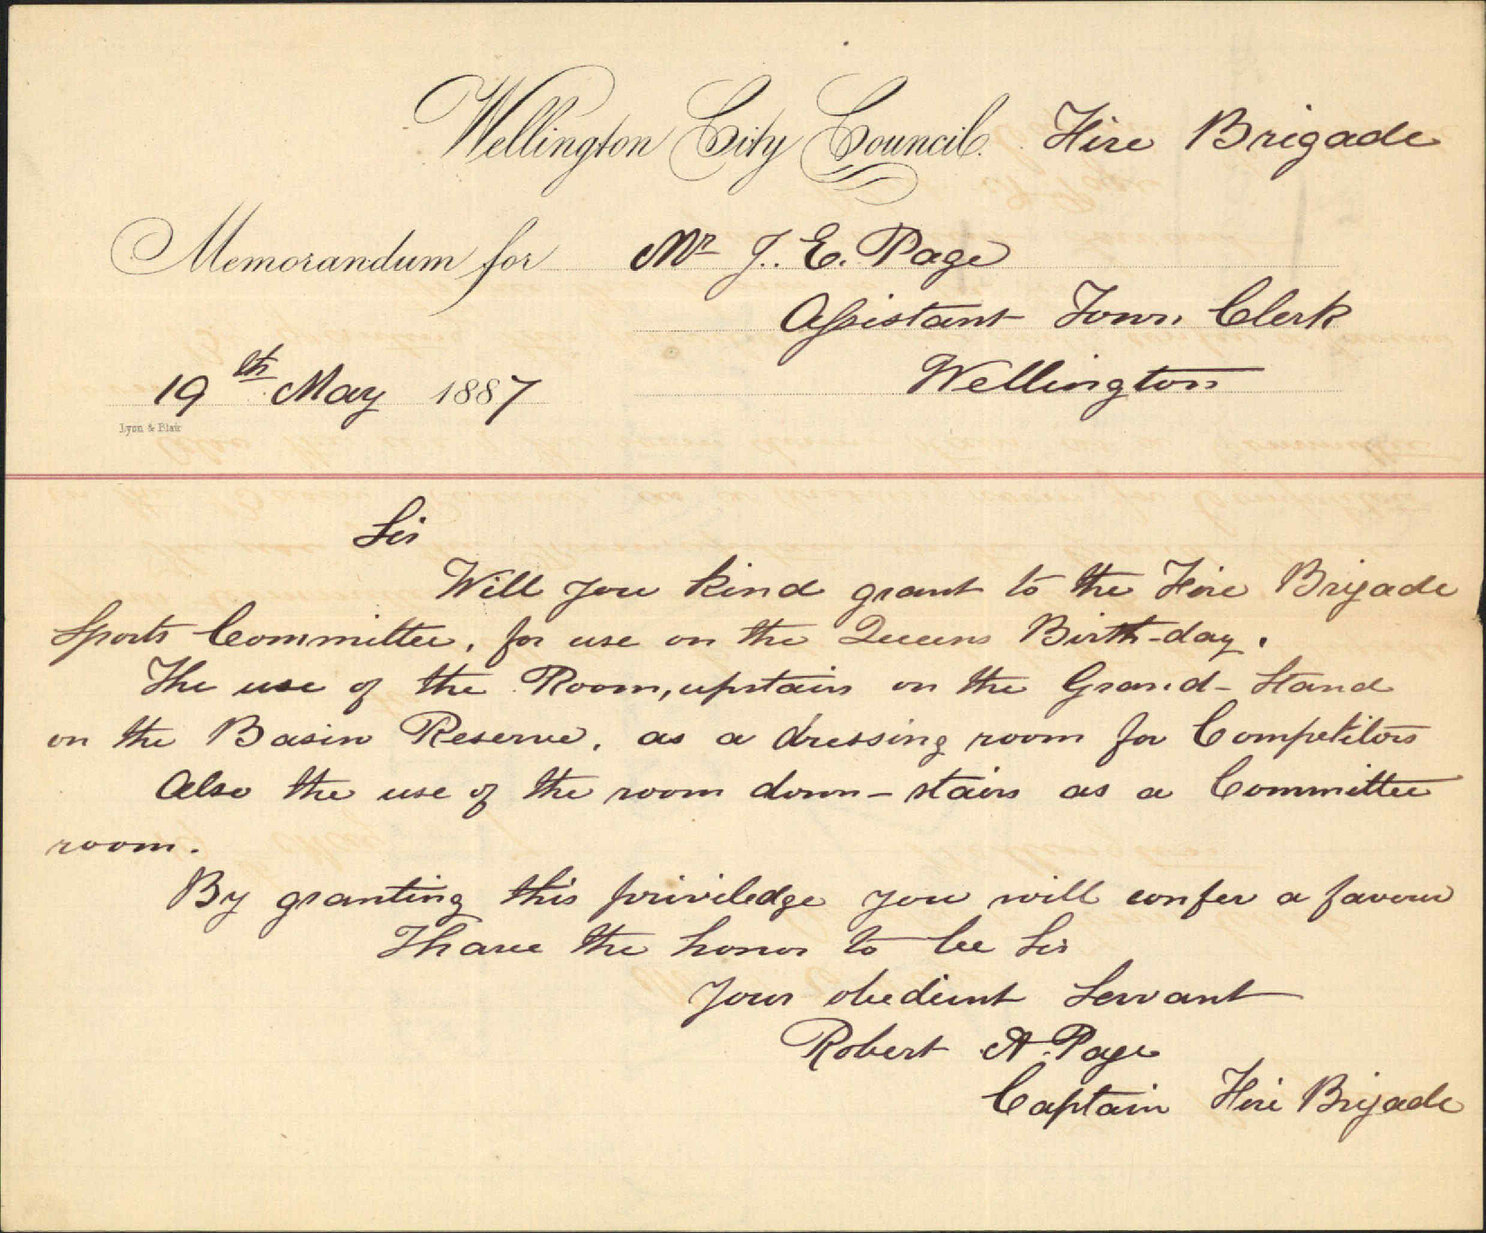 Wellington City Council. Fire Brigade
Memorandum for Mr J. E. Page
Assistant Town Clerk
19th May 1887 Wellington
Lyon & Blair
Sir
Will you kind grant to the Fire Brigade
Sports Committee, for use on the Queens Birth-day.
The use of the Room, upstairs on the Grand-Stand
on the Basin Reserve, as a dressing room for Competitors
Also the use of the room down-stairs as a Committee
room.
By granting this priviledge you will confer a favour
I have the honor to be Sir
Your obedient Servant
Robert A. Page
Captain Fire Brigade